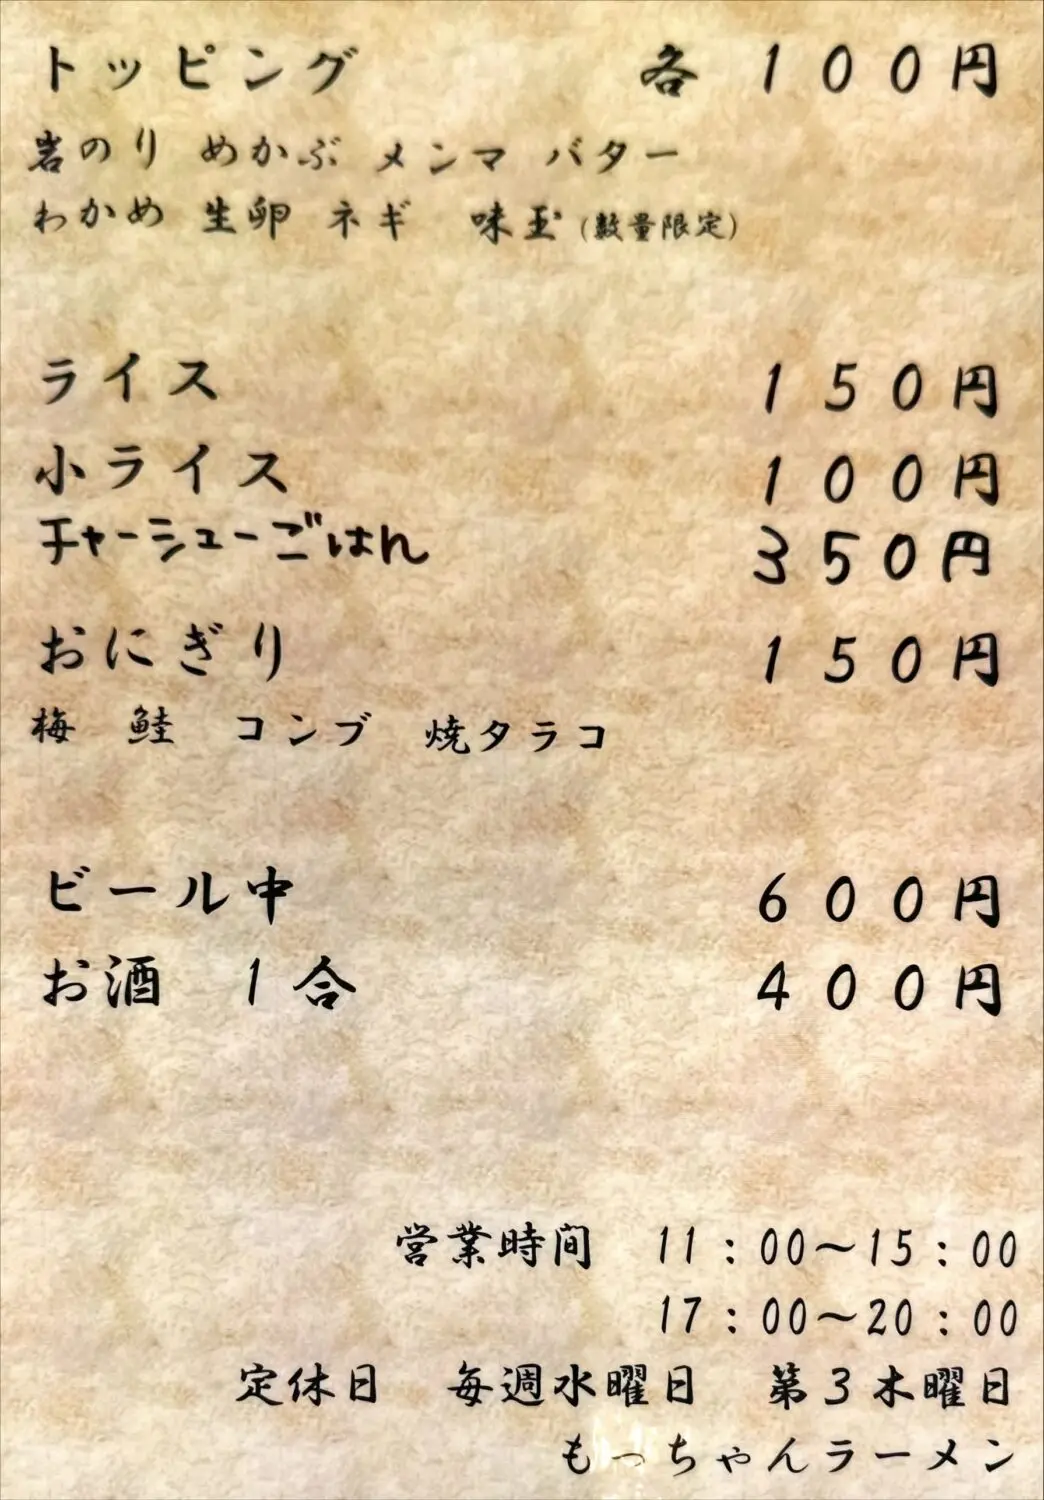 トッピング 各100円
岩のり めかぶ メンマ バター
わかめ 生卵 ネギ 味玉(数量限定)
ライス 150円
小ライス 100円
チャーシューごはん 350円
おにぎり 150円
梅 鮭 コンブ 焼タラコ
ビール中 600円
お酒 1合 400円
営業時間 11:00～15:00
17:00～20:00
定休日 毎週水曜日 第3木曜日
もっちゃんラーメン